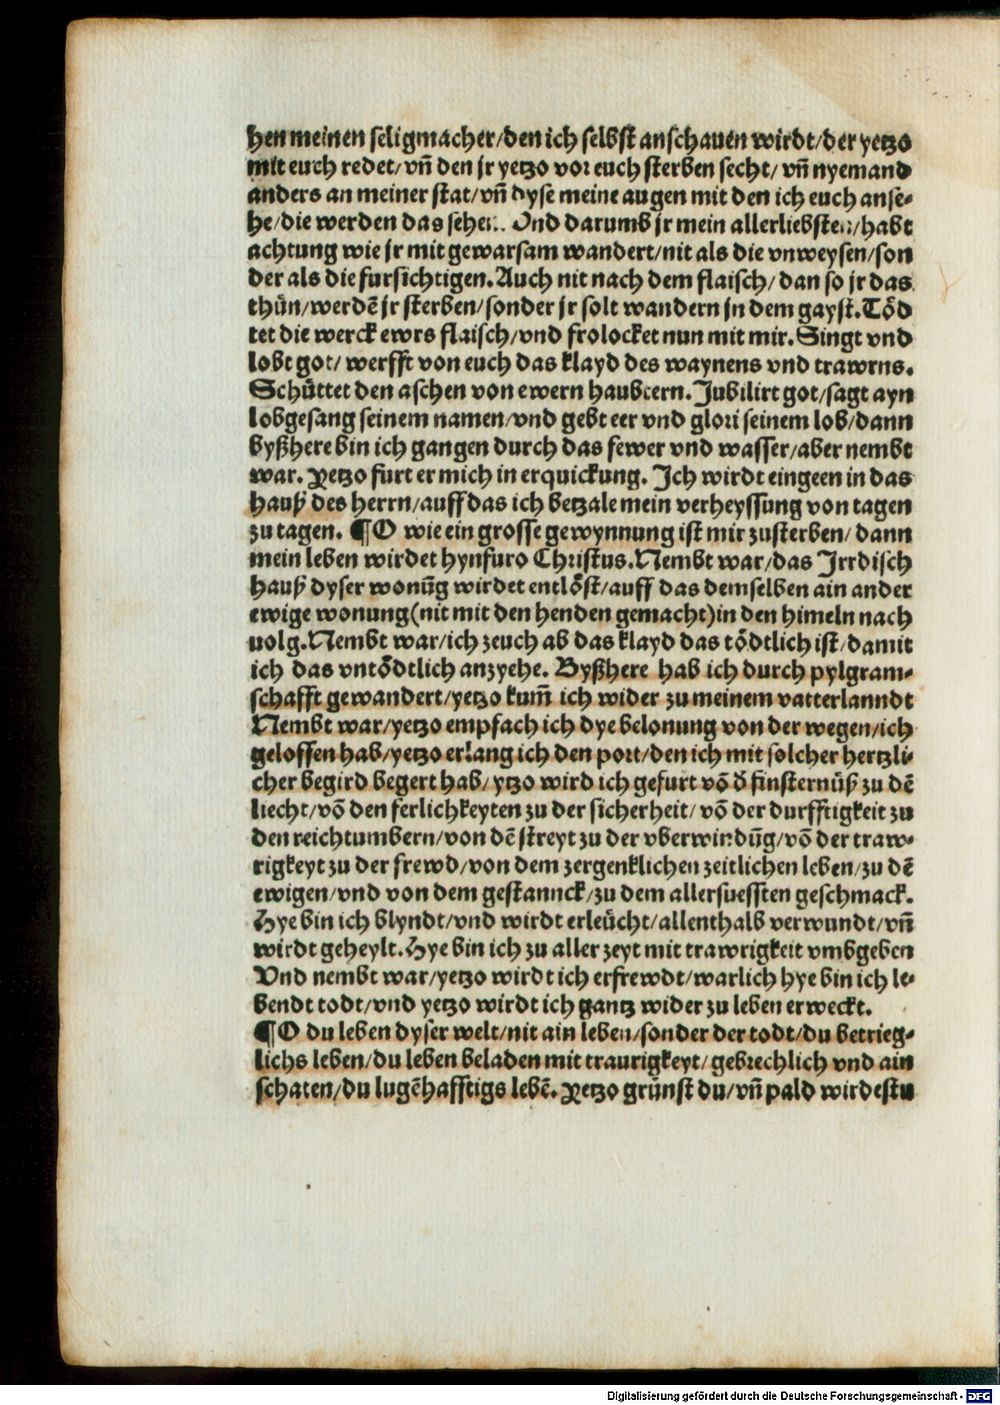 hen meinen seligmacher/den ich selbst anschauen wirdt/der yetzo
mit euch redet/vn̄ den jr yetzo vor euch sterben secht/ vn̄ nyemand
anders an meiner stat/vn̄ dyse meine augen mit den ich euch anse⸗
he/die werden das sehen. Vnd darumb jr mein allerliebsten/habt
achtung wie jr mit gewarsam wandert/nit als die vnweysen/son
der als die fursichtigen. Auch nit nach dem flaisch/ dan so jr das
thün/werdē jr sterben/sonder jr solt wandern jn dem gayst. Töd
tet die werck ewrs flaisch/vnd frolocket nun mit mir. Singt vnd
lobt got/ werfft von euch das klayd des waynens vnd trawrns.
Schüttet den aschen von ewern haubtern. Jubilirt got/sagt ayn
lobgesang seinem namen/vnd gebt eer vnd glori seinem lob/dann
byßhere bin ich gangen durch das fewer vnd wasser/aber nembt
war. Yetzo furt er mich in erquickung. Ich wirdt eingeen in das
hauß des herrn/auff das ich betzale mein verheyssung von tagen
zu tagen. ¶O wie ein grosse gewynnung ist mir zusterben/ dann
mein leben wirdet hynfuro Christus. Nembt war/das Jrrdisch
hauß dyser wonūg wirdet entlöst/auff das demselben ain ander
ewige wonung(nit mit den henden gemacht)in den himeln nach
uolg. Nembt war/ich zeuch ab das klayd das tödtlich ist/damit
ich das vntödtlich anzyehe. Byßhere hab ich durch pylgram⸗
schafft gewandert/yetzo kum̄ ich wider zu meinem vatterlanndt
Nembt war/yetzo empfach ich dye belonung von der wegen/ich
geloffen hab/yetzo erlang ich den port/den ich mit solcher hertzli⸗
cher begird begert hab/ ytzo wird ich gefurt vō d̄ finsternüß zu dē
liecht/vō den ferlichkeyten zu der sicherheit/ vō der durfftigkeit zu
den reichtumbern/von dē streyt zu der vberwindūg/vō der traw⸗
rigkeyt zu der frewd/von dem zergenklichen zeitlichen leben/zu dē
ewigen/vnd von dem gestannck/zu dem allersuessten geschmack.
Hye bin ich blyndt/vnd wirdt erleücht/allenthalb verwundt/vn̄
wirdt geheylt. Hye bin ich zu aller zeyt mit trawrigkeit vmbgeben
Vnd nembt war/yetzo wirdt ich erfrewdt/warlich hye bin ich le⸗
bendt todt/vnd yetzo wirdt ich gantz wider zu leben erweckt.
¶O du leben dyser welt/nit ain leben/sonder der todt/du betrieg⸗
lichs leben/du leben beladen mit traurigkeyt/ gebrechlich vnd ain
schaten/du lugēhafftigs lebē. Yetzo grünst du/vn̄ pald wirdestu
Digitalisierung gefördert durch die Deutsche Forschungsgemeinschaft - DFG